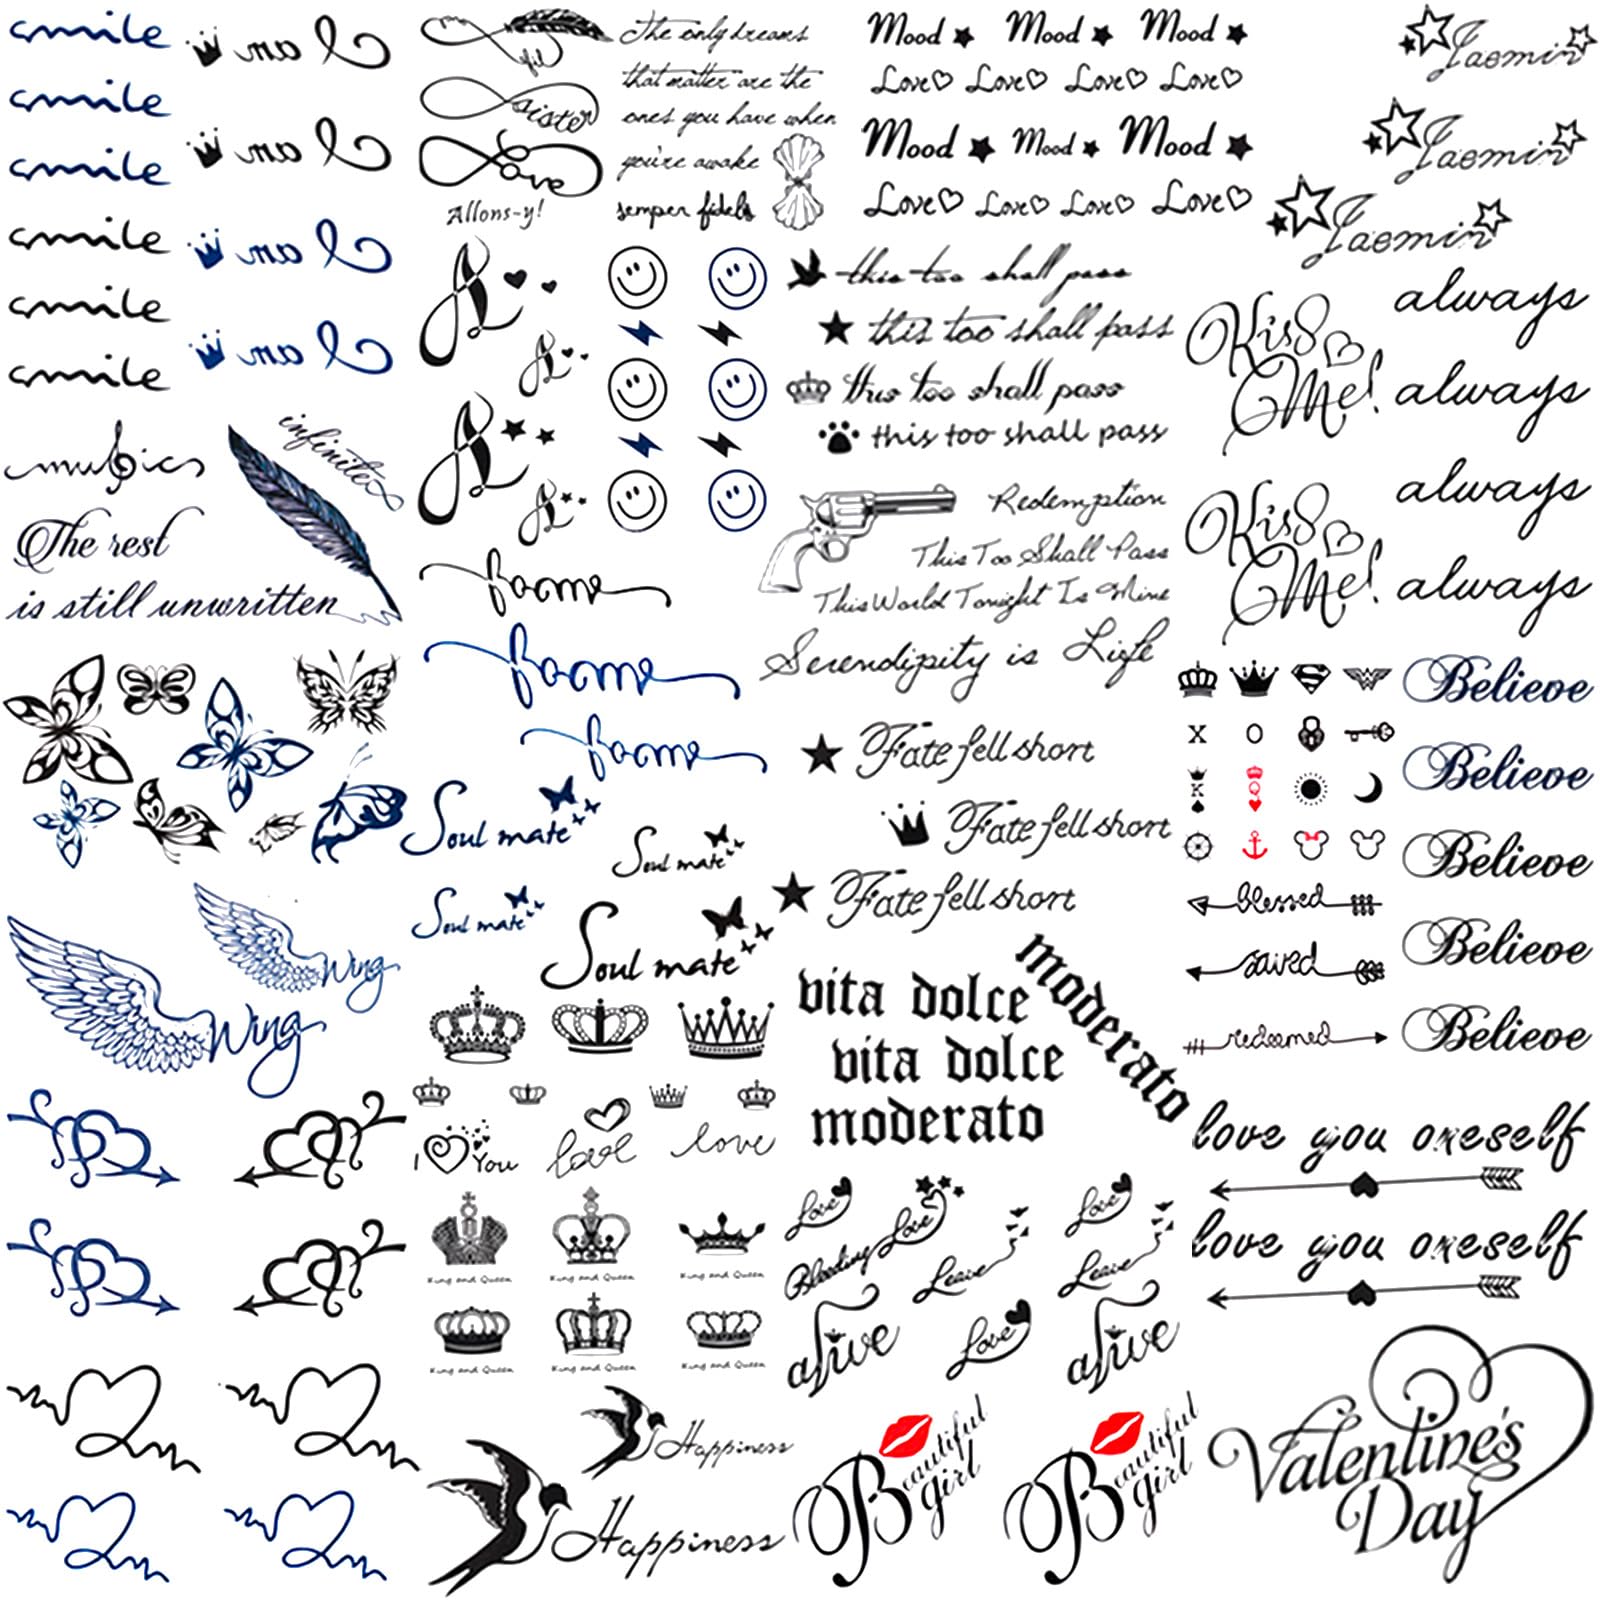 smile
smile
smile
smile
smile
smile
music
infinite
The rest
is still unwritten
Wing
Wing
sister
love
Allons-y!
The only dreams
that matter are the
ones you have when
you're awake
semper fidelis
Mood Mood Mood
Love Love Love Love
Mood Mood Mood
Love Love Love Love
Jaemin
Jaemin
Jaemin
this too shall pass
this too shall pass
this too shall pass
this too shall pass
Redemption
This Too Shall Pass
This World Tonight Is Mine
Serendipity is Life
Kiss
Me!
Kiss
Me!
always
always
always
always
Soul mate
Soul mate
Soul mate
Soul mate
Fate fell short
Fate fell short
Fate fell short
X O
K Q
Believe
Believe
Believe
Believe
Believe
blessed
saved
redeemed
vita dolce
vita dolce
moderato
moderato
I You
love
love
King and Queen King and Queen King and Queen
King and Queen King and Queen King and Queen
Love
Bleeding Love
Leave
alive
Love
Love
Leave
alive
love you oneself
love you oneself
Happiness
Happiness
Beautiful
girl
Beautiful
girl
Valentine's
Day